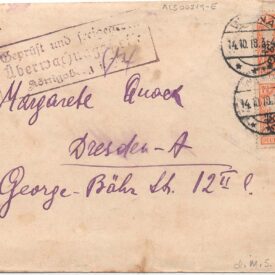 ALS00219-E
Geprüft und freigegeben
Überwachung
Königsberg
14.10.18.
14.10.18
Margarete Quock
Dresden-A
George-Bähr St. 12 II l.
d.M.S.